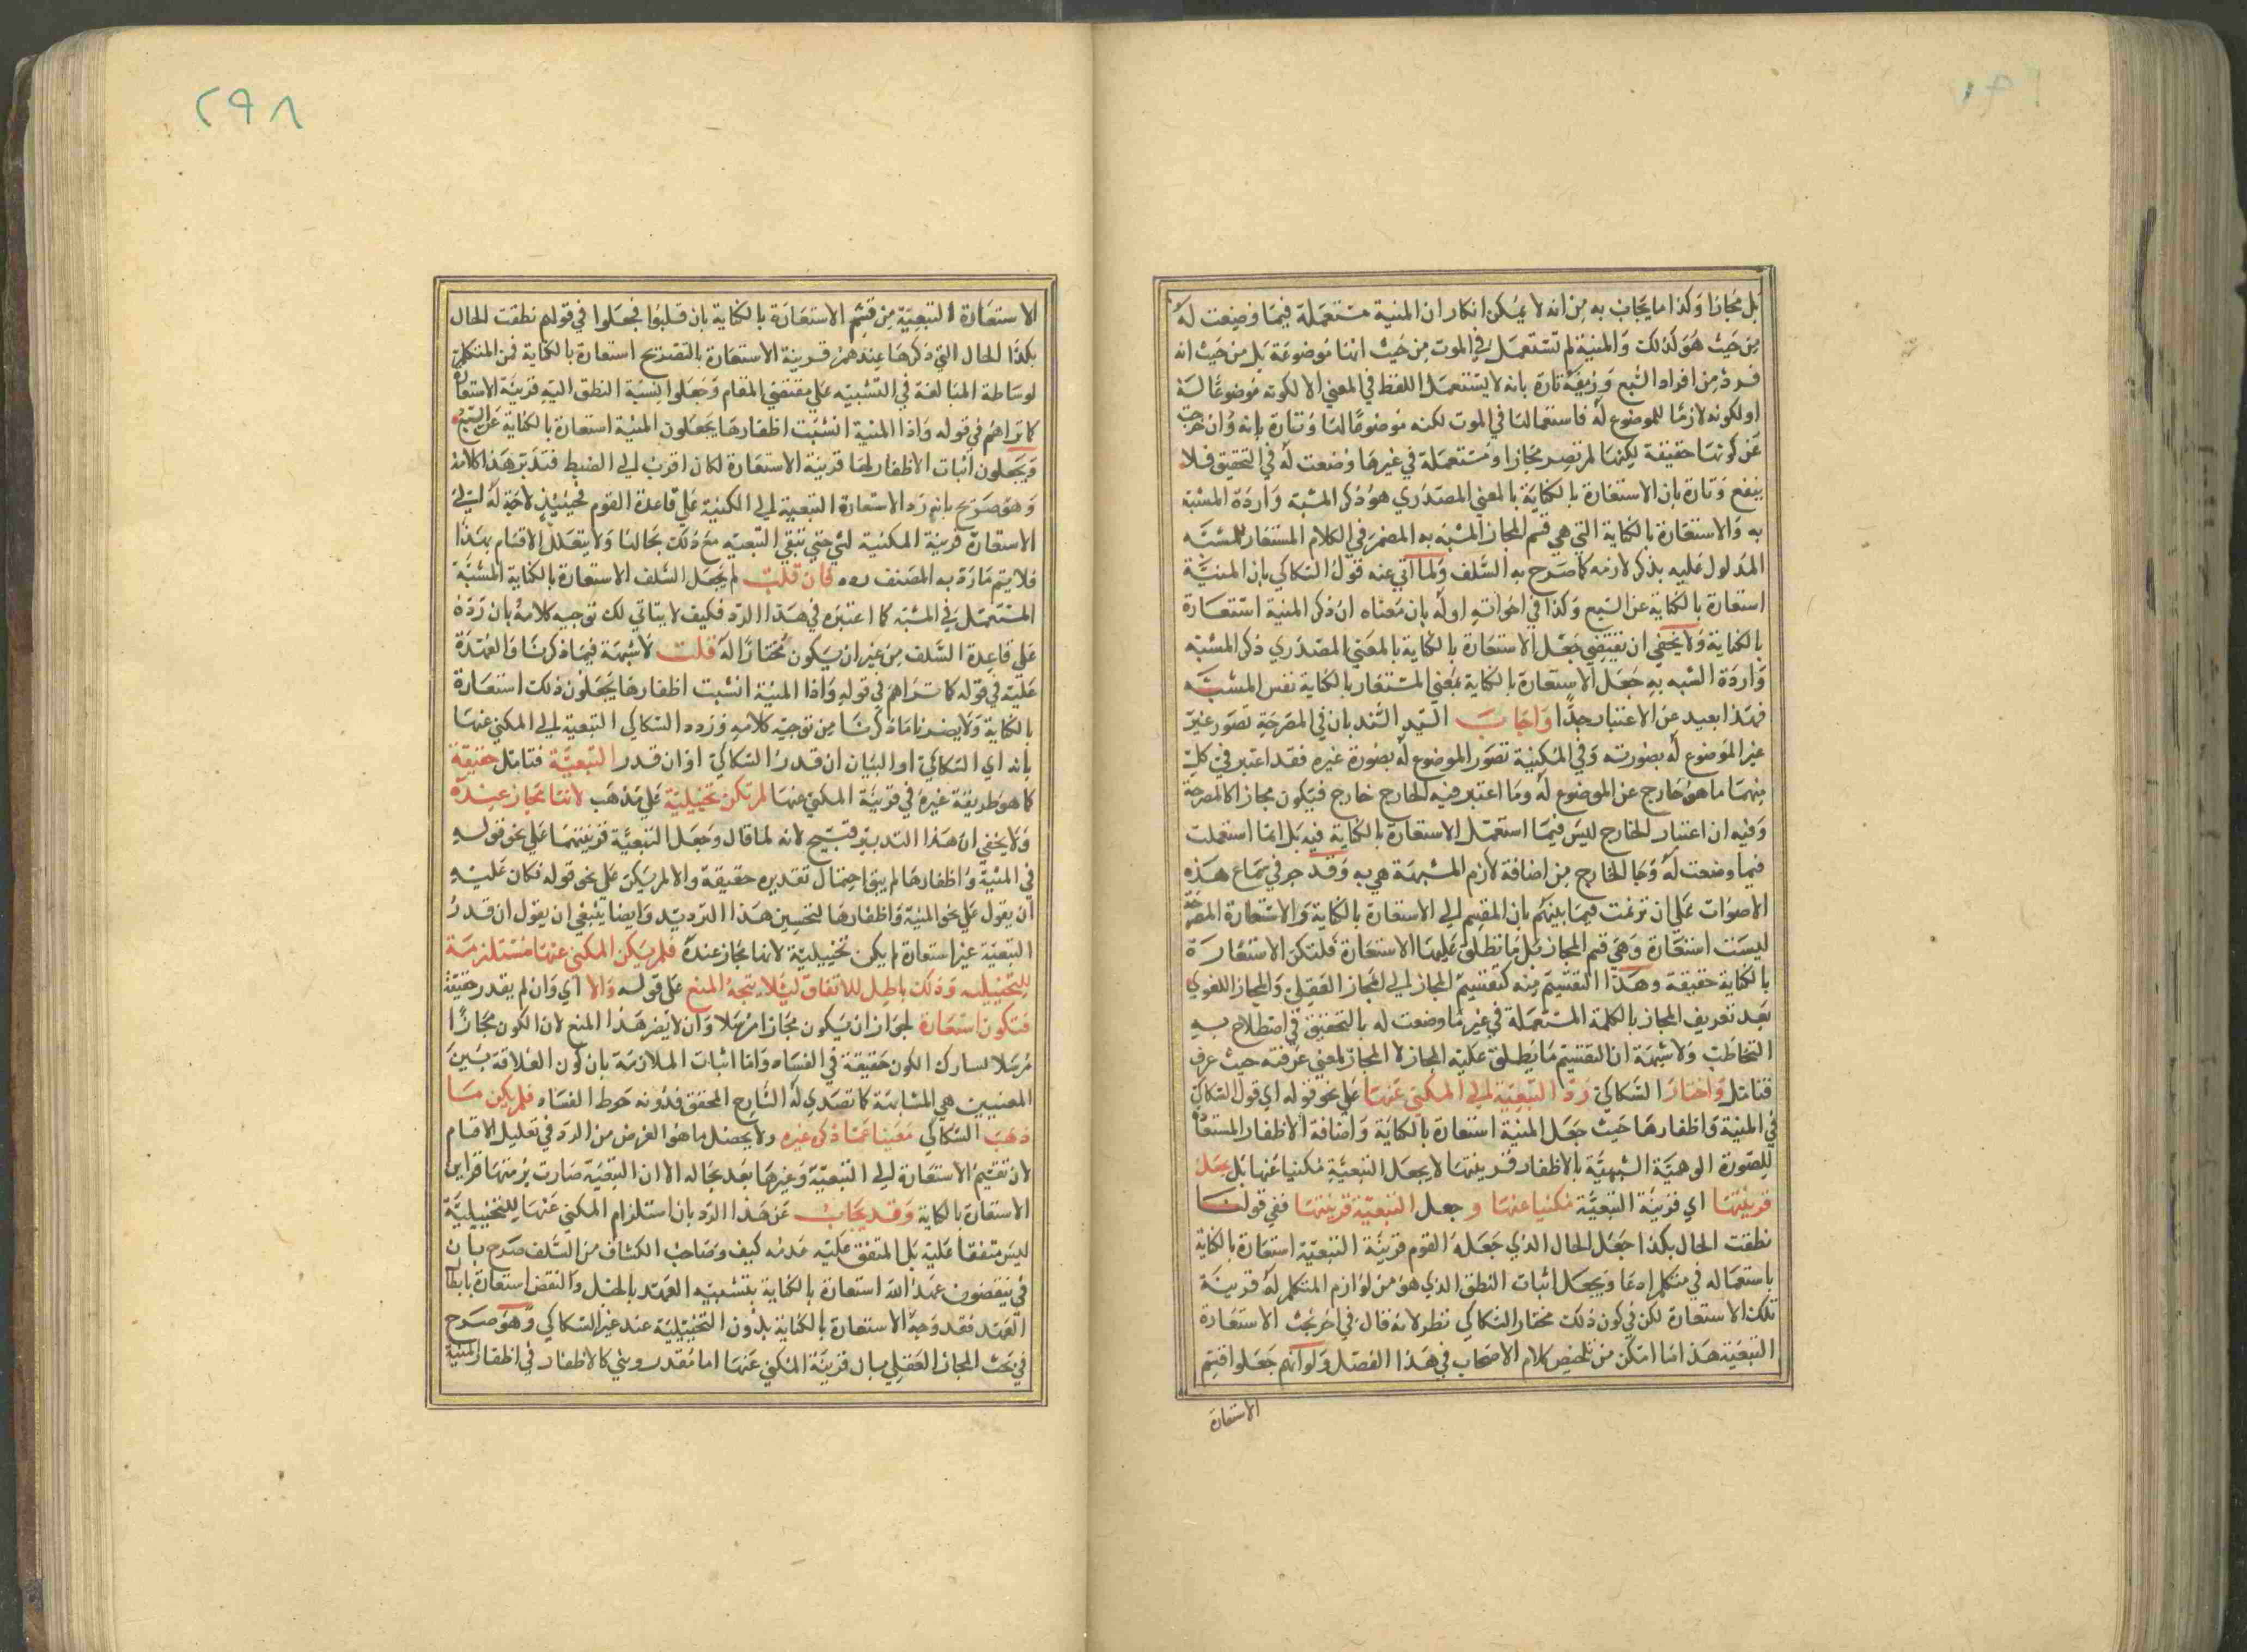 بل مجازا وكذا ما يجاب به من انه لا يمكن انكار ان المنية مستعملة فيما وضعت له
من حيث هو كذلك والمنية لم تستعمل في الموت من حيث انها موضوعة بل من حيث انه
فرد من افراد السبع وزيفه تارة بانه لا يستعمل اللفظ في المعنى الا لكونه موضوعا له
او لكونه لازما للموضوع له فاستعمالها في الموت لكنه موضوعا لها وتارة بانه وان خرجت
عن كونها حقيقة لكنها لم تصر مجازا ومستعملة في غير ما وضعت له في التحقيق فلا
ينفع وتارة بان الاستعارة بالكناية بالمعنى المصدري هو ذكر المشبه وارادة المشبه
به والاستعارة بالكناية التي هي قسم المجاز المشبه به المضمر في الكلام المستعار للمشبه
المدلول عليه بذكر لازمه كما صرح به السلف ولما اتي عنه قول السكاكي بان المنية
استعارة بالكناية عن السبع وكذا في اخواته اوله بان معناه ان ذكر المنية استعارة
بالكناية ولا يخفى ان تقتضي جعل الاستعارة بالكناية بالمعنى المصدري ذكر المشبه
وارادة المشبه به جعل الاستعارة بالكناية بمعنى المستعار بالكناية نفس المشبه
فهذا بعيد عن الاعتبار جدا واجاب السيد السند بان في المصرحة تصور غير
غير الموضوع له بصورته وفي المكنية تصور الموضوع له بصورة غيره فقد اعتبر في كل
منهما ما هو خارج عن الموضوع له وما اعتبر فيه الخارج خارج فيكون مجازا كالمصرحة
وفيه ان اعتبار الخارج ليس فيما استعمل الاستعارة بالكناية فيه بل انما استعملت
فيما وضعت له وجا الخارج من اضافة لازم المشبهة هي به وقد جر في سماع هذه
الاصوات على ان ترنمت فيما بينهم بان المقسم الى الاستعارة بالكناية والاستعارة المصرحة
ليست استعارة وهي قسم المجاز بل ما تطلق عليها الاستعارة فلتكن الاستعارة
بالكناية حقيقة وهذا التقسيم منه كتقسيم المجاز الى المجاز العقلي والمجاز اللغوي
بعد تعريف المجاز بالكلمة المستعملة في غير ما وضعت له بالتحقيق في اصطلاح به
التخاطب ولا شبهة ان التقسيم ما يطلق عليه المجاز لا المجاز بالمعنى عرفته حيث عرف
فتامل واختار السكاكي رد التبعية الى المكني عنها على نحو قوله اي قول السكاكي
في المنية واظفارها حيث جعل المنية استعارة بالكناية واضافة الاظفار المستعار
للصورة الوهمية الشبهية بالاظفار قرينتها لا يجعل التبعية مكنيا عنها بل يجعل
قرينتها اي قرينة التبعية مكنيا عنها وجعل التبعية قرينتها ففي قولنا
نطقت الحال بكذا جعل الحال الذي جعله القوم قرينة التبعية استعارة بالكناية
باستعماله في متكلم ادعا ويجعل اثبات النطق الذي هو من لوازم المتكلم له قرينة
تلك الاستعارة لكن في كون ذلك مختار السكاكي نظر لانه قال في اخر بحث الاستعارة
التبعية هذا ما امكن من تلخيص كلام الاصحاب في هذا الفصل ولو انهم جعلوا قسم
الاستعارة
٢٩٨
الاستعارة التبعية من قسم الاستعارة بالكناية بان قلبوا فجعلوا في قولهم نطقت الحال
بكذا الحال التي ذكرها عندهم قرينة الاستعارة بالتصريح استعارة بالكناية عن المتكلم
لوساطة المبالغة في التشبيه على مقتضى المقام وجعلوا نسبة النطق اليه قرينة الاستعارة
كما تراهم في قوله واذا المنية انشبت اظفارها يجعلون المنية استعارة بالكناية عن السبع
ويجعلون اثبات الاظفار لها قرينة الاستعارة لكان اقرب الى الضبط فتدبر هذا كلامه
وهو صريح بانهم رد الاستعارة التبعية الى المكنية على قاعدة القوم فحينئذ لا حاجة له الى
الاستعارة قرينة المكنية لشي حتى تبقى التبعية مع ذلك بحالها ولا يتقلل الاقسام بهذا
فلا يتم ما رد به المصنف ره فان قلت لم يجعل السلف الاستعارة بالكناية المشبه
المستعمل في المشبه كما اعتبره في هذا الرد فكيف لا يتاتى لك توجيه كلامه بان رده
على قاعدة السلف من غير ان يكون مختارا له قلت لا شبهة فيما ذكرنا والعمدة
عليه في قوله كما تراهم في قوله واذا المنية انشبت اظفارها يجعلون ذلك استعارة
بالكناية ولا يضرنا ما ذكرنا من توجيه كلامه ورده السكاكي التبعية الى المكني عنها
بانه اي السكاكي او البيان ان قدر السكاكي او ان قدر التبعية فتامل حقيقة
كما هو طريقة غيره في قرينة المكني عنها لم تكن تخييلية على مذهب لانها مجاز عنده
ولا يخفى ان هذا التدبير قبيح لانه لما قال وجعل التبعية قرينتها على نحو قوله
في المنية واظفارها لم يبق احتمال تقديره حقيقة والا لم يكن على نحو قوله فكان عليه
ان يقول على نحو المنية واظفارها لتحسين هذا الترديد وايضا ينبغي ان يقول ان قدر
التبعية غير استعارة لم يكن تخييلية لانها مجاز عنده فلم يكن المكني عنها مستلزمة
للتخييلية وذلك باطل للاتفاق لئلا يتجه المنع على قوله والا اي وان لم يقدر حقيقة
فتكون استعارة لجواز ان يكون مجازا مرسلا وان لا يضر هذا المنع لان الكون مجازا
مرسلا لسارك الكون حقيقة في الفساد واما اثبات الملازمة بان كون العلاقة بين
المعنيين هي المشابهة كما تصدى له الشارح المحقق فدونه خرط القتاد فلم يكن ما
ذهب السكاكي مغنيا عما ذكره غيره ولا يحصل ما هو الغرض من الرد في تقليل الاقسام
لان تقسيم الاستعارة الى التبعية وغيرها بعد بحاله الا ان التبعية صارت برمتها قراين
الاستعارة بالكناية وقد يجاب عن هذا الرد بان استلزام المكني عنها للتخييلية
ليس متفقا عليه بل المتفق عليه عدمه كيف وصاحب الكشاف من السلف صرح بان
في ينقضون عهد الله استعارة بالكناية بتشبيه العهد بالحبل والنقض استعارة بابطال
العهد فقد وجد الاستعارة بالكناية بدون التخييلية عند غير السكاكي وهو صرح
في بحث المجاز العقلي بان قرينة المكني عنها اما مقدر وهمي كالاظفار في اظفار المنية